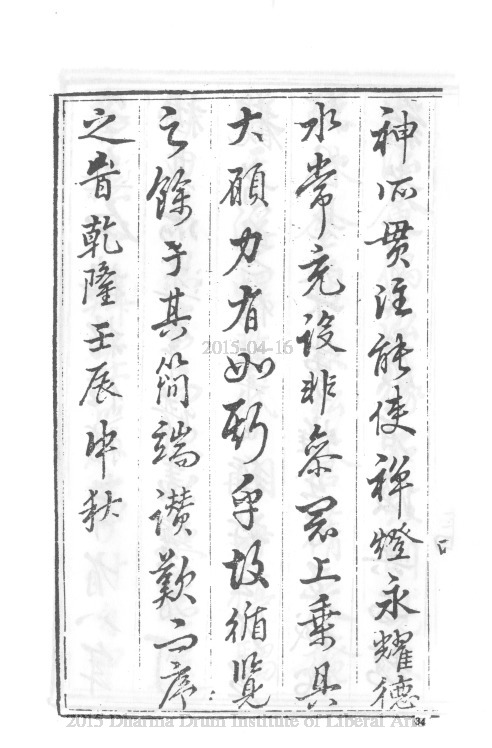 神所貫注能使禪燈永耀德
水常充設非參最上乘具
大願力者如斯乎故循覽
之餘于其簡端讃歎而序
之旹乾隆壬辰中秋
2015-04-16
2015 Dharma Drum Institute of Liberal Art
34